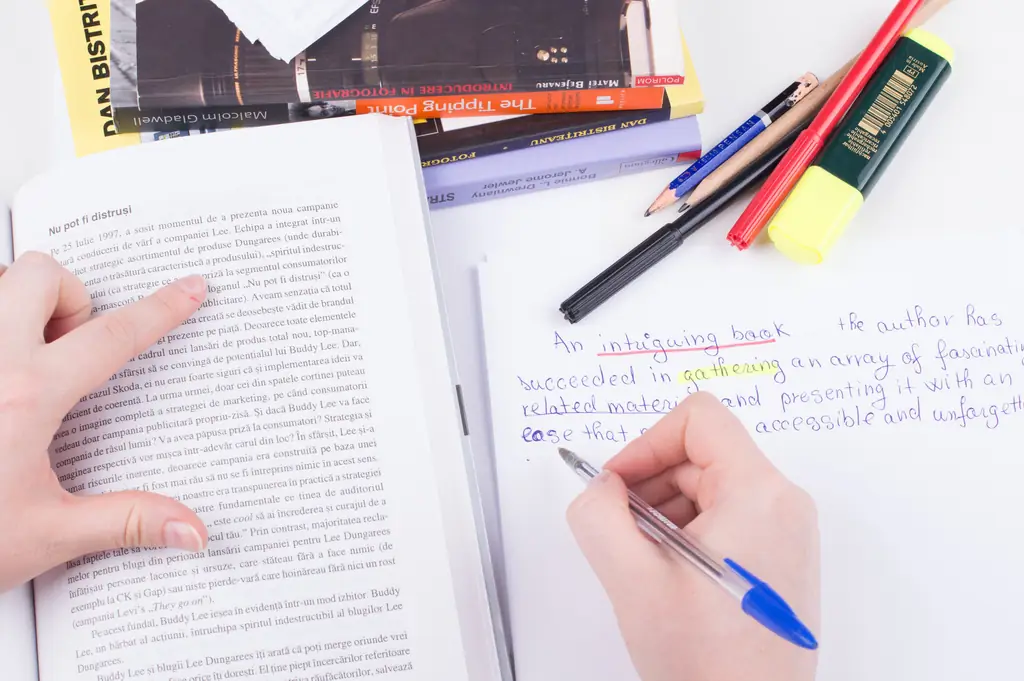 DAN BISTRIT
MATEI BEJENARU
INTRODUCERE IN FOTOGRAFIE
POLIROM
Malcolm Gladwell
The Tipping Point
DAN BISTRIȚEANU
FOTOG
Bonnie L. Drewniany
A. Jerome Jewler
STR
Nu pot fi distruși
Pe 25 iulie 1997, a sosit momentul de a prezenta noua campanie
conducerii de vârf a companiei Lee. Echipa a integrat într-un
strategic asortimentul de produse Dungarees (unde durabi-
o trăsătură caracteristică a produsului), „spiritul indestruc-
(ca strategie priză la segmentul consumatorilor
-mascotă loganul „Nu pot fi distruși” (ca o
publicitare). Aveam senzația că totul
creată se deosebește vădit de brandul
prezente pe piață. Deoarece toate elementele
cadrul unei lansări de produs total nou, top-mana-
sfârșit să se convingă de potențialul lui Buddy Lee. Dar,
cazul Skoda, ei nu erau foarte siguri că și implementarea ideii va
de coerentă. La urma urmei, doar cei din spatele cortinei puteau
o imagine completă a strategiei de marketing, pe când consumatorii
vedeau doar campania publicitară propriu-zisă. Și dacă Buddy Lee va face
compania de râsul lumii? Va avea păpușa priză la consumatori? Strategia și
imaginea respectivă vor mișca într-adevăr carul din loc? În sfârșit, Lee și-a
riscurile inerente, deoarece campania era construită pe baza unei
fi fost mai rău să nu se fi întreprins nimic în acest sens.
noastre era transpunerea în practică a strategiei
fundamentale ce ținea de auditoriul
„este cool să ai încrederea și curajul de a
locul tău.” Prin contrast, majoritatea recla-
melor pentru blugi din perioada lansării campaniei pentru Lee Dungarees
înfățișau persoane laconice și ursuze, care stăteau fără a face nimic (de
exemplu la CK și Gap) sau niște pierde-vară care hoinăreau fără nici un rost
(campania Levi's „They go on”).
Pe acest fundal, Buddy Lee ieșea în evidență într-un mod izbitor. Buddy
Lee, un bărbat al acțiunii, întruchipa spiritul indestructibil al blugilor Lee
Dungarees.
Buddy Lee și blugii Lee Dungarees îți arată că poți merge oriunde vrei
orice îți dorești. El ține piept încercărilor referitoare
răufăcătorilor, salvează
An intriguing book the author has
succeeded in gathering an array of fascinatin
related materi and presenting it with an
ease that accessible and unforgett